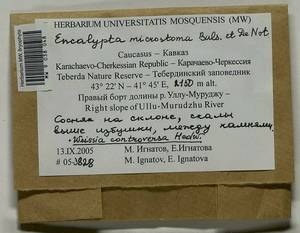 HERBARIUM UNIVERSITATIS MOSQUENSIS (MW)
Encalypta microstoma Bals. et De Not.
Caucasus – Кавказ
Karachaevo-Cherkessian Republic – Карачаево-Черкессия
Teberda Nature Reserve – Тебердинский заповедник
43° 22' N – 41° 45' E, 2150 m alt.
Правый борт долины р. Уллу-Муруджу –
Right slope of Ullu-Murudzhu River
Сосняк на склоне, скалы
выше избушки, между камнями.
+ Weissia controversa Hedw.
13.IX.2005
М. Игнатов, Е.Игнатова
# 05-3828
M. Ignatov, E. Ignatova